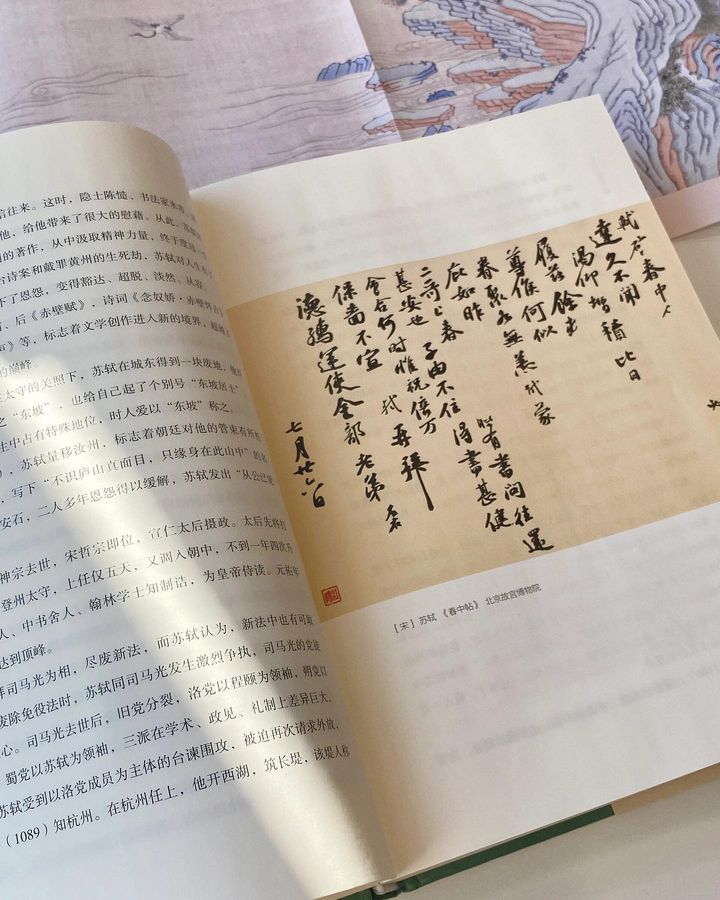 信往来。这时，隐士陈慥、书法家米芾
他，给他带来了很大的慰藉。从此，苏轼
的著作，从中汲取精神力量，终于度过
台诗案和戴罪黄州的生死劫，苏轼对人生
下了恩怨，变得豁达、超脱、淡然、从容
、后《赤壁赋》，诗词《念奴娇·赤壁怀古》
声》等，标志着文学创作进入新的境界，超越了
的巅峰
太守的关照下，苏轼在城东得到一块废地，他
之“东坡”，也给自己起了个别号“东坡居士”
生中占有特殊地位，时人爱以“东坡”称之。
），苏轼量移汝州，标志着朝廷对他的管束有所
，写下“不识庐山真面目，只缘身在此山中”的名
安石，二人多年恩怨得以缓解，苏轼发出“从公已觉
神宗去世，宋哲宗即位，宣仁太后摄政。太后先将打
登州太守，上任仅五天，又调入朝中，不到一年四次升
人、中书舍人、翰林学士知制诰，为皇帝侍读。元祐年
达到顶峰。
拜司马光为相，尽废新法，而苏轼认为，新法中也有可取
废除免役法时，苏轼同司马光发生激烈争执，司马光的党徒
心。司马光去世后，旧党分裂，洛党以程颐为领袖，朔党以
蜀党以苏轼为领袖，三派在学术、政见、礼制上差异巨大，
苏轼受到以洛党成员为主体的台谏围攻，被迫再次请求外放，
（1089）知杭州。在杭州任上，他开西湖，筑长堤，该堤人称
軾啓春中人
達久不聞
渴仰增積比日
履茲餘
尊候何似
眷聚各無恙軾蒙
庇如昨
二哥上春 子由不住得書甚健
甚安也 時有書問往還
會合何時惟祝倍万
保嗇不宣 軾再拜
德孺運使金部老弟
七月廿六日
［宋］苏轼 《春中帖》 北京故宫博物院